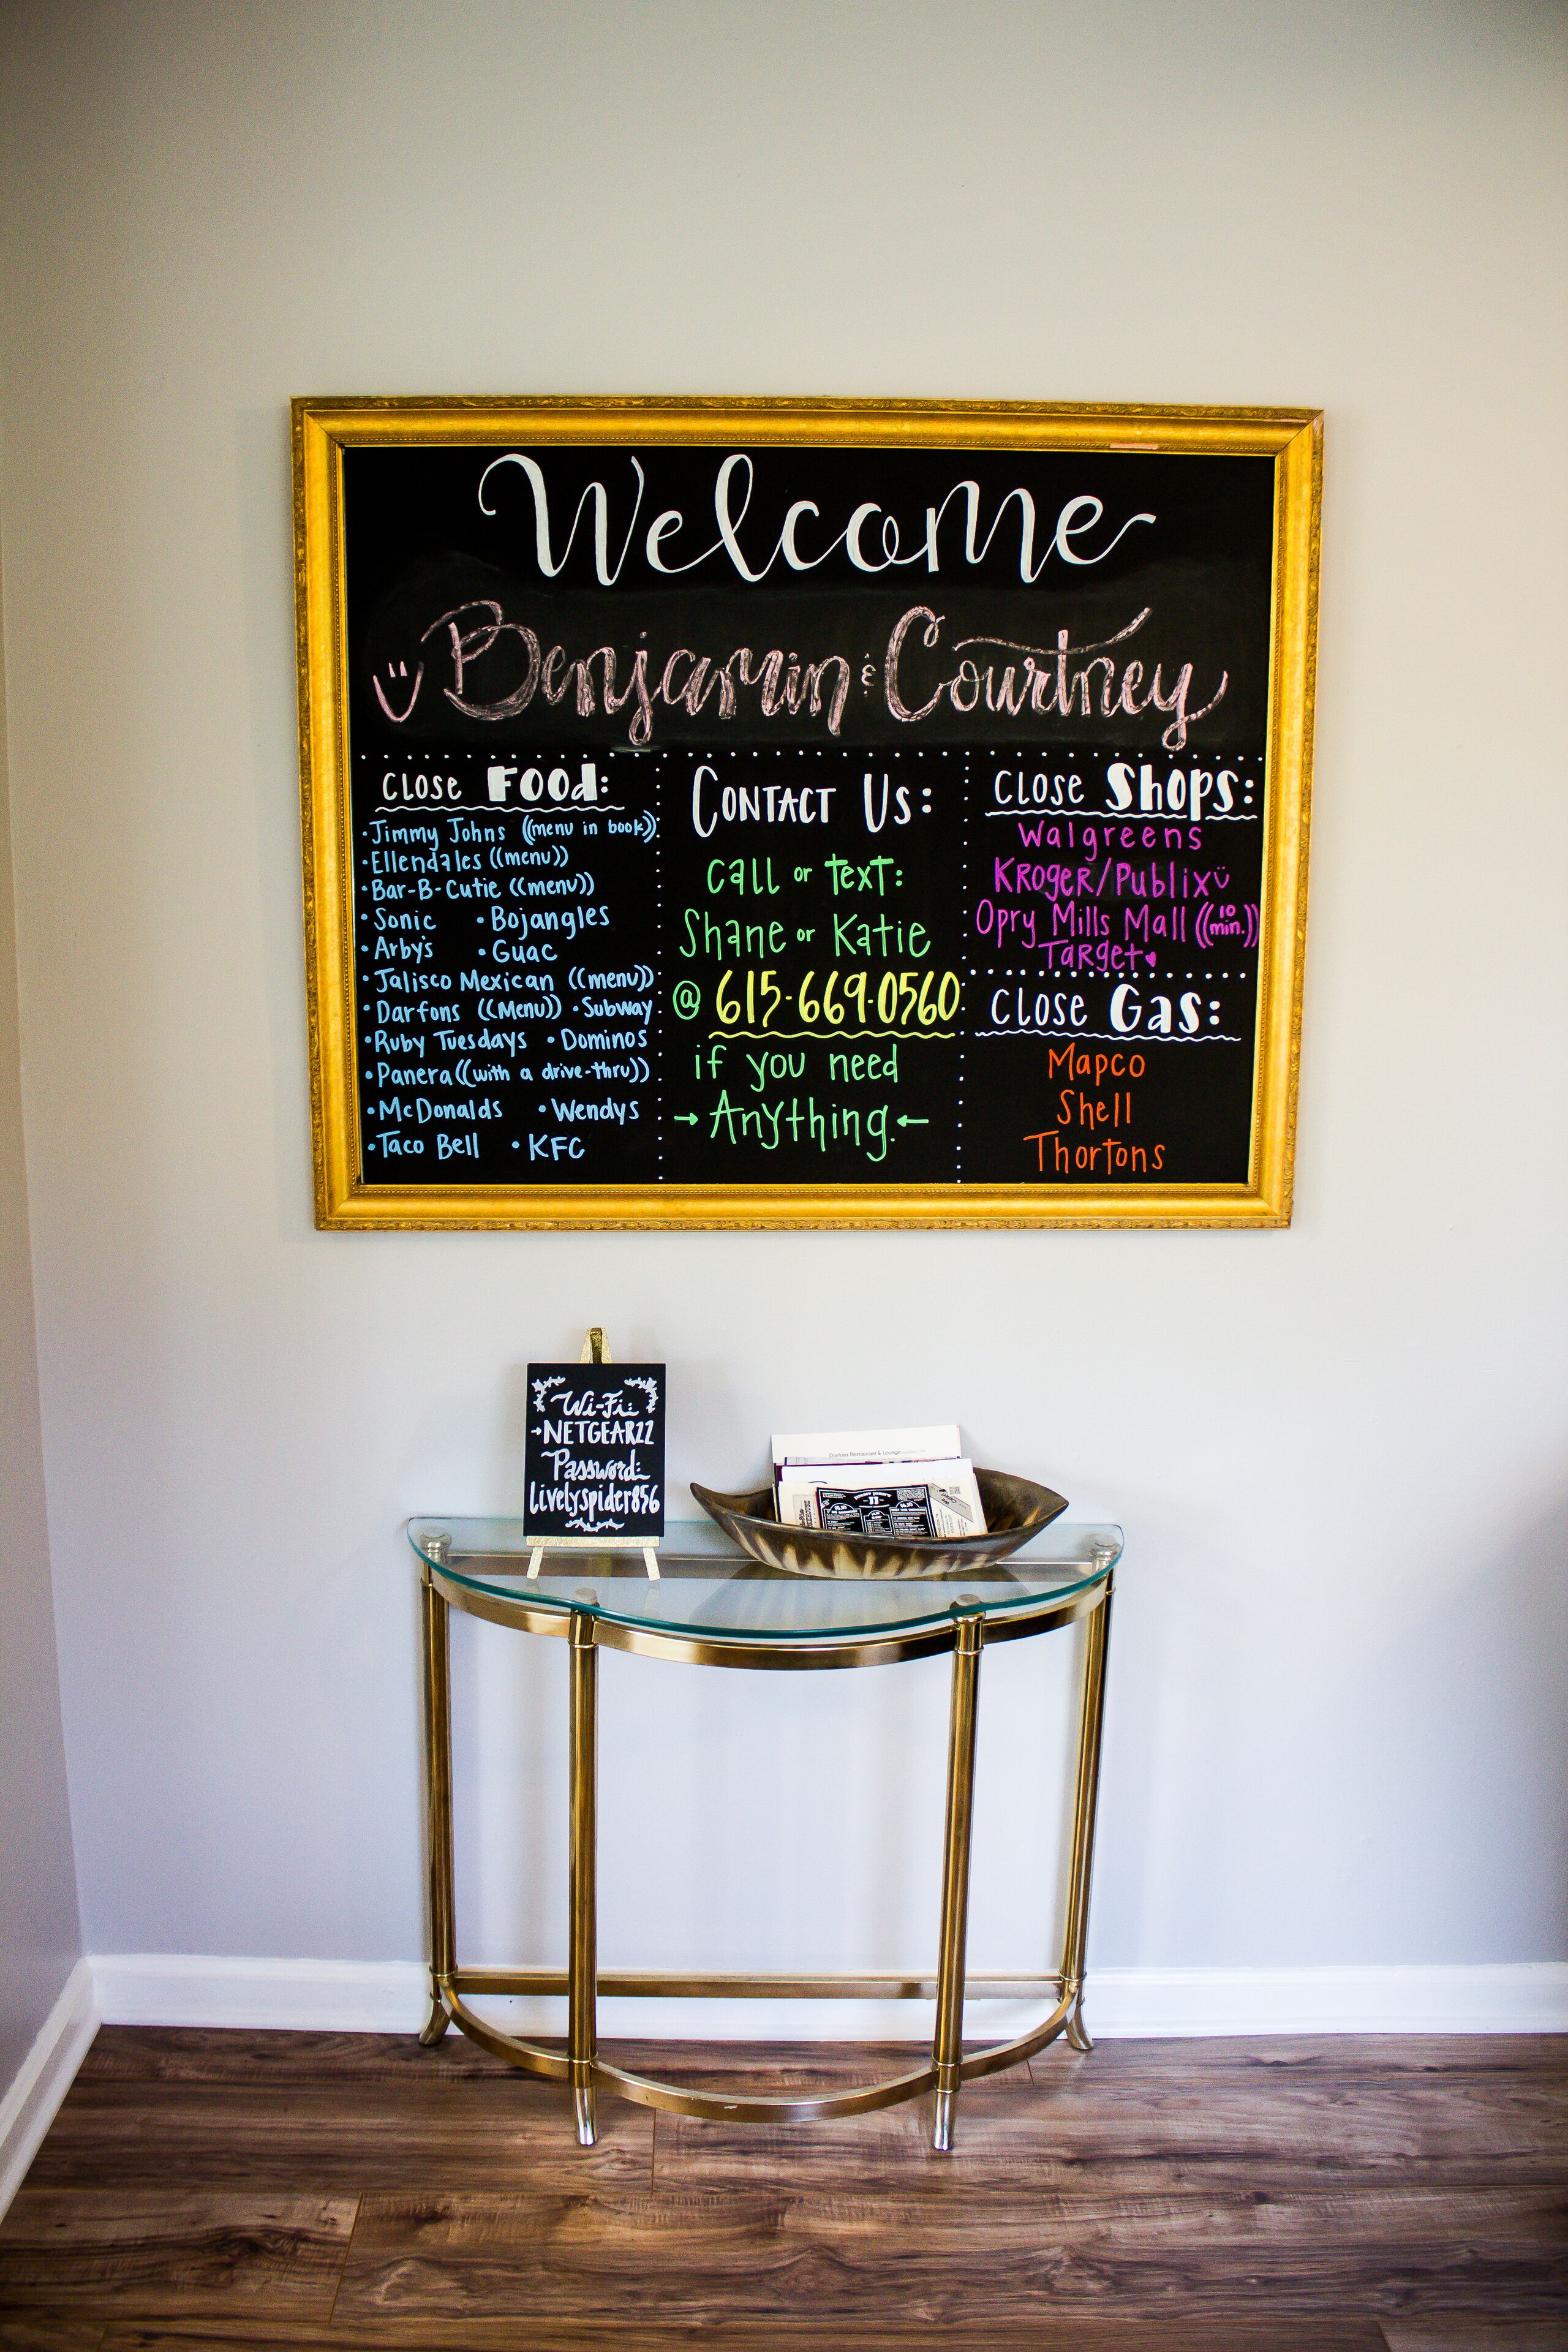 Welcome
Benjamin & Courtney
Close Food:
• Jimmy Johns ((menu in book))
• Ellendales ((menu))
• Bar-B-Cutie ((menu))
• Sonic • Bojangles
• Arby's • Guac
• Jalisco Mexican ((menu))
• Darfons ((Menu)) • Subway
• Ruby Tuesdays • Dominos
• Panera ((with a drive-thru))
• McDonalds • Wendys
• Taco Bell • KFC
Contact Us:
Call or Text:
Shane or Katie
@ 615-669-0560
if you need
→ Anything. ←
Close Shops:
Walgreens
Kroger/Publix
Opry Mills Mall ((10 min.))
Target ♥
Close Gas:
Mapco
Shell
Thortons
Wi-Fi:
→NETGEAR22
Password:
livelyspider856
Darfons Restaurant & Lounge